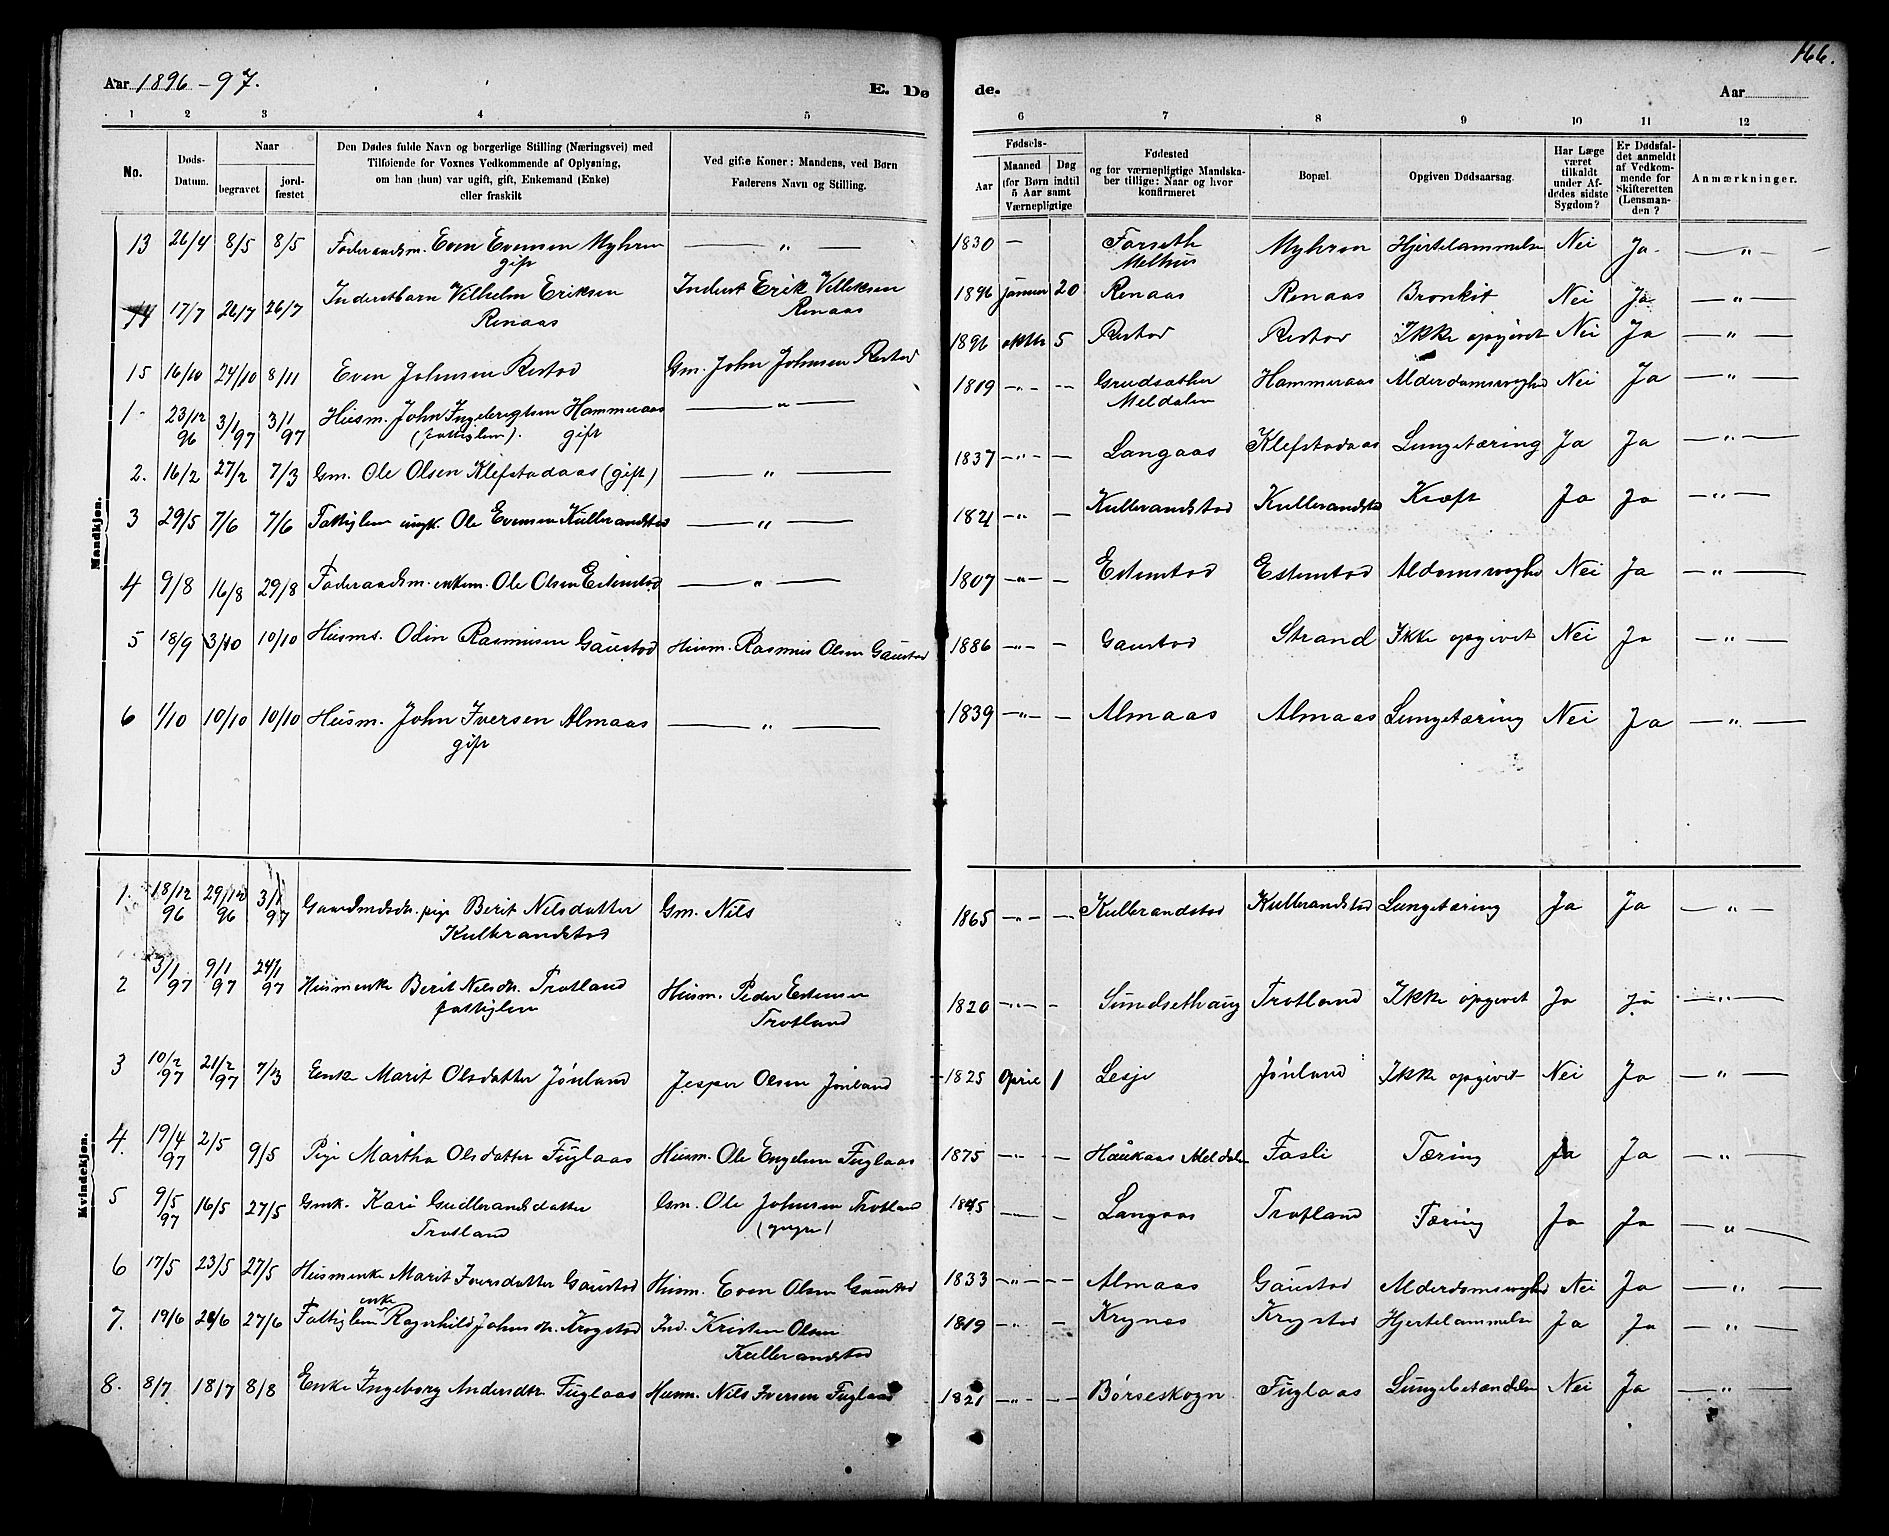 166.
Aar 1896-97.
E. Dø
de.
Aar
1 2 3 4 5
6 7 8 9 10 11 12
No.
Døds-Datum.
Naar
begravet
jordfæstet
Den Dødes fulde Navn og borgerlige Stilling (Næringsvei) med
Tilføiende for Voxnes Vedkommende af Oplysning,
om han (hun) var ugift, gift, Enkemand (Enke)
eller fraskilt
Ved gifte Koner: Mandens, ved Børn
Faderens Navn og Stilling.
Fødsels-
Aar
Maaned
Dag
(for Børn indtil
5 Aar samt
Værnepligtige
Fødested
og for værnepligtige Mandska-
ber tillige: Naar og hvor
konfirmeret
Bopæl.
Opgiven Dødsaarsag.
Har Læge
været
tilkaldt
under Af-
dødes sidste
Sygdom?
Er Dødsfal-
det anmeldt
af Vedkom-
mende for
Skifteretten
(Lensman-
den?
Anmærkninger.
Mandkjøn.
13 26/4 8/5 8/5 Føderaadsm. Even Evensen Myhren — „ — 1830 — Forseth Myhren Hjertelammelse Nei Ja — „ —
gift
Melhus
14 17/7 26/7 26/7 Inderstbarn Vilhelm Eriksen Inderst Erik Villiksen 1896 januar 20 Renaas Renaas Bronkit Nei Ja — „ —
Renaas
Renaas
15 16/10 24/10 8/11 Even Johnsen Restad Gm. John Johnsen Restad 1896 oktbr 5 Restad Restad Ikke opgivet Nei Ja — „ —
1 23/12 96 3/1 97 3/1 97 Husm. John Ingebrigtsen Hammeraas — „ — 1819 — „ — — Grudsæther Hammeraas Alderdomssvaghed Nei Ja — „ —
(fattiglem). gift
Meldalen
2. 16/2 27/2 7/3 Gm. Ole Olsen Klefstadaas (gift) — „ — 1837 — „ — — Langaas Klefstadaas Lungetæring Ja Ja — „ —
3 29/5 7/6 7/6 Fattiglem ungk. Ole Evensen Kulbrandstad — „ — 1821 — „ — — Kulbrandstad Kulbrandstad Kræft Ja Ja — „ —
4 9/8 16/8 29/8 Føderaadsm. enkem. Ole Olsen Estenstad — „ — 1807 — „ — — Estenstad Estenstad Aldomssvaghed Nei Ja — „ —
5 18/9 3/10 10/10 Husms. Odin Rasmusen Gaustad Husm. Rasmus Olsen Gaustad 1886 — „ — — Gaustad Strand Ikke opgivet Nei Ja — „ —
6 1/10 10/10 10/10 Husm. John Iversen Almaas — „ — 1839 — „ — — Almaas Almaas Lungetæring Nei Ja — „ —
gift
Kvindekjøn.
1. 18/12 96 29/12 96 3/1 97 Gaardmdsdtr. pige Berit Nilsdatter Gm. Nils 1865 — „ — — Kulbrandstad Kulbrandstad Lungetæring Ja Ja — „ —
Kulbrandstad
2 3/1 97 9/1 97 24/1 97 Husmenke Berit Nilsdtr. Trotland Husm. Peder Estensen 1820 — „ — — Sundsethaug Trotland Ikke opgivet Ja Ja — „ —
fattiglem
Trotland
3 10/2 97 21/2 97 7/3 Enke Marit Olsdatter Jønland Jesper Olsen Jønland 1825 April 1 Lesje Jønland Ikke opgivet Nei Ja — „ —
4. 19/4 97 2/5 9/5 Pige Martha Olsdatter Fuglaas Husm. Ole Engelsen Fuglaas 1875 — „ — — Haukaas Meldalen Fasli Tæring Ja Ja — „ —
5 9/5 97 16/5 27/5 Gmk. Kari Gudbrandsdatter Gm. Ole Johnsen Trotland 1845 — — Langaas Trotland Tæring Ja Ja — „ —
Trotland
6 17/5 23/5 27/5 Husmenke Marit Iversdatter Gaustad Husm. Even Olsen Gaustad 1833 — „ — — Almaas Gaustad Alderdomssvaghed Nei Ja — „ —
7. 19/6 26/6 27/6 Fattiglem enke Ragnhild Johnsdtr. Krogstad Ind. Kristen Olsen 1819 — „ — — Krynes Krogstad Hjertelammelse Ja Ja — „ —
Kulbrandstad
8. 8/7 18/7 8/8 Enke Ingeborg Andersdtr. Fuglaas Husm. Nils Iversen Fuglaas 1821 — „ — — Børseskogn Fuglaas Lungebetændelse Nei Ja — „ —